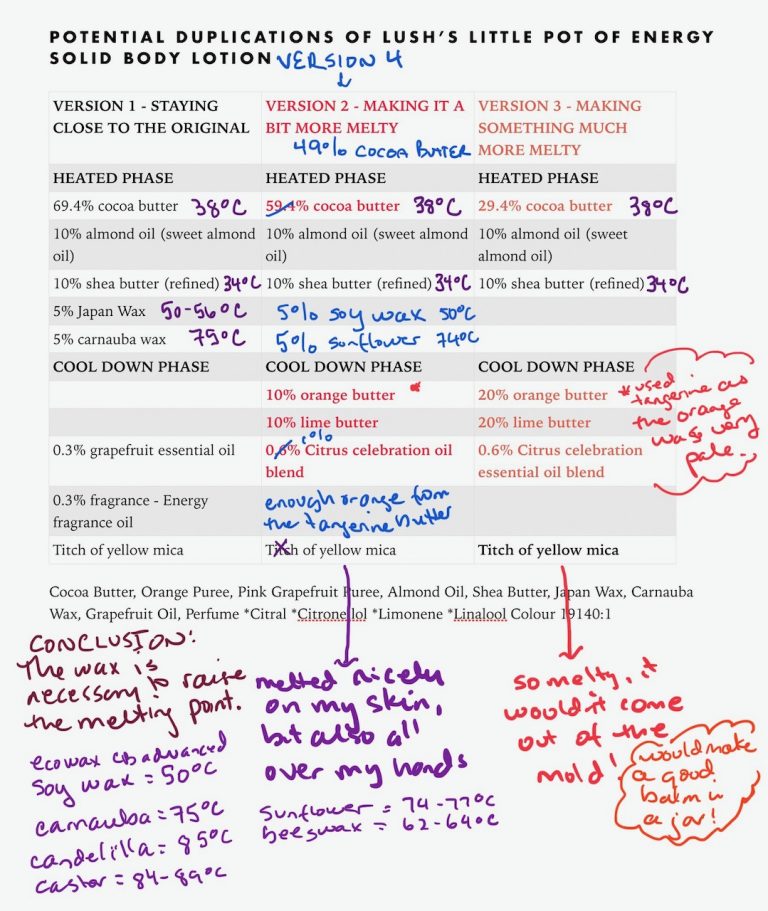 POTENTIAL DUPLICATIONS OF LUSH'S LITTLE POT OF ENERGY
SOLID BODY LOTION VERSION 4
VERSION 1 - STAYING
CLOSE TO THE ORIGINAL
VERSION 2 - MAKING IT A
BIT MORE MELTY
49% COCOA BUTTER
VERSION 3 - MAKING
SOMETHING MUCH
MORE MELTY
HEATED PHASE HEATED PHASE HEATED PHASE
69.4% cocoa butter 38°C 59.4% cocoa butter 38°C 29.4% cocoa butter 38°C
10% almond oil (sweet almond
oil)
10% almond oil (sweet almond
oil)
10% almond oil (sweet
almond oil)
10% shea butter (refined) 34°C 10% shea butter (refined) 34°C 10% shea butter (refined) 34°C
5% Japan Wax 50-56°C 5% soy wax 50°C
5% carnauba wax 75°C 5% sunflower 74°C
COOL DOWN PHASE COOL DOWN PHASE COOL DOWN PHASE
10% orange butter * 20% orange butter
*used
tangerine as
the orange
was very
pale..
10% lime butter 20% lime butter
0.3% grapefruit essential oil
1%
0.6% Citrus celebration oil
blend
0.6% Citrus celebration
essential oil blend
0.3% fragrance - Energy
fragrance oil
enough orange from
the tangerine butter
Titch of yellow mica Titch of yellow mica Titch of yellow mica
Cocoa Butter, Orange Puree, Pink Grapefruit Puree, Almond Oil, Shea Butter, Japan Wax, Carnauba
Wax, Grapefruit Oil, Perfume *Citral *Citronellol *Limonene *Linalool Colour 19140:1
CONCLUSION:
The wax is
necessary to raise
the melting point.
ecowax cb advanced
soy wax = 50°C
carnauba = 75°C
candelilla = 85°C
castor = 84-89°C
melted nicely
on my skin,
but also all
over my hands
sunflower = 74-77°C
beeswax = 62-64°C
so melty, it
wouldn't come
out of the
mold!
would make
a good
balm in
a jar!